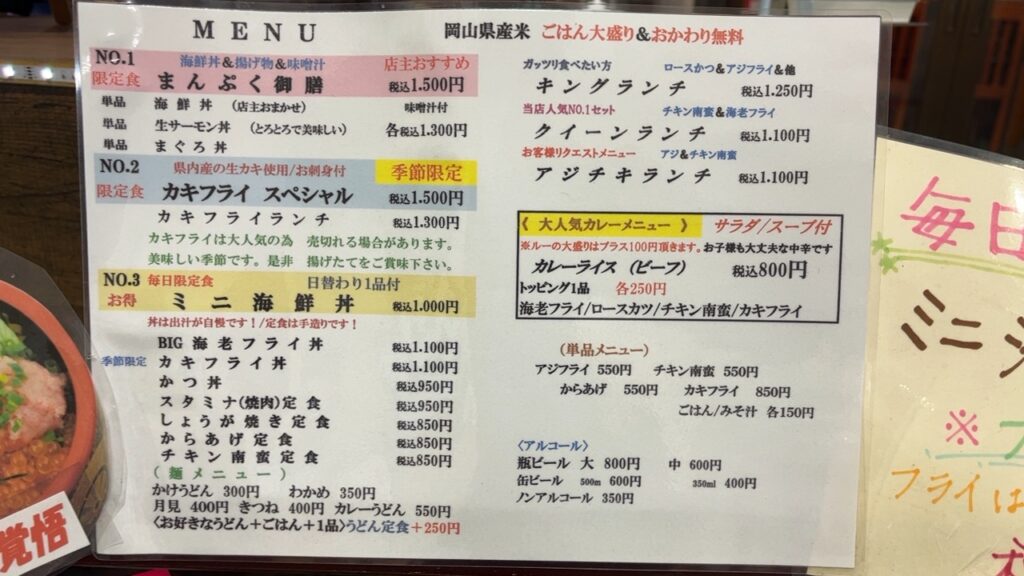 MENU
岡山県産米 ごはん大盛り&おかわり無料
NO.1 海鮮丼&揚げ物&味噌汁 店主おすすめ
限定食 まんぷく御膳 税込1.500円
単品 海鮮丼 (店主おまかせ) 味噌汁付
単品 生サーモン丼 (とろとろで美味しい) 各税込1.300円
単品 まぐろ丼
NO.2 県内産の生カキ使用/お刺身付 季節限定
限定食 カキフライ スペシャル 税込1.500円
カキフライランチ 税込1.300円
カキフライは大人気の為 売切れる場合があります。
美味しい季節です。是非 揚げたてをご賞味下さい。
NO.3 毎日限定食 日替わり1品付
お得 ミニ海鮮丼 税込1.000円
丼は出汁が自慢です!/定食は手造りです!
BIG 海老フライ丼 税込1.100円
季節限定 カキフライ丼 税込1.100円
かつ丼 税込950円
スタミナ(焼肉)定食 税込950円
しょうが焼き定食 税込850円
からあげ定食 税込850円
チキン南蛮定食 税込850円
(麺メニュー)
かけうどん 300円 わかめ 350円
月見 400円 きつね 400円 カレーうどん 550円
〈お好きなうどん+ごはん+1品〉うどん定食+250円
ガッツリ食べたい方 ロースかつ&アジフライ&他
キングランチ 税込1.250円
当店人気NO.1セット チキン南蛮&海老フライ
クイーンランチ 税込1.100円
お客様リクエストメニュー アジ&チキン南蛮
アジチキランチ 税込1.100円
《 大人気カレーメニュー 》 サラダ/スープ付
※ルーの大盛りはプラス100円頂きます。お子様も大丈夫な中辛です
カレーライス (ビーフ) 税込800円
トッピング1品 各250円
海老フライ/ロースカツ/チキン南蛮/カキフライ
(単品メニュー)
アジフライ 550円 チキン南蛮 550円
からあげ 550円 カキフライ 850円
ごはん/みそ汁 各150円
〈アルコール〉
瓶ビール 大 800円 中 600円
缶ビール 500m 600円 350ml 400円
ノンアルコール 350円
毎日
ミニ
※フ
フライは
覚悟